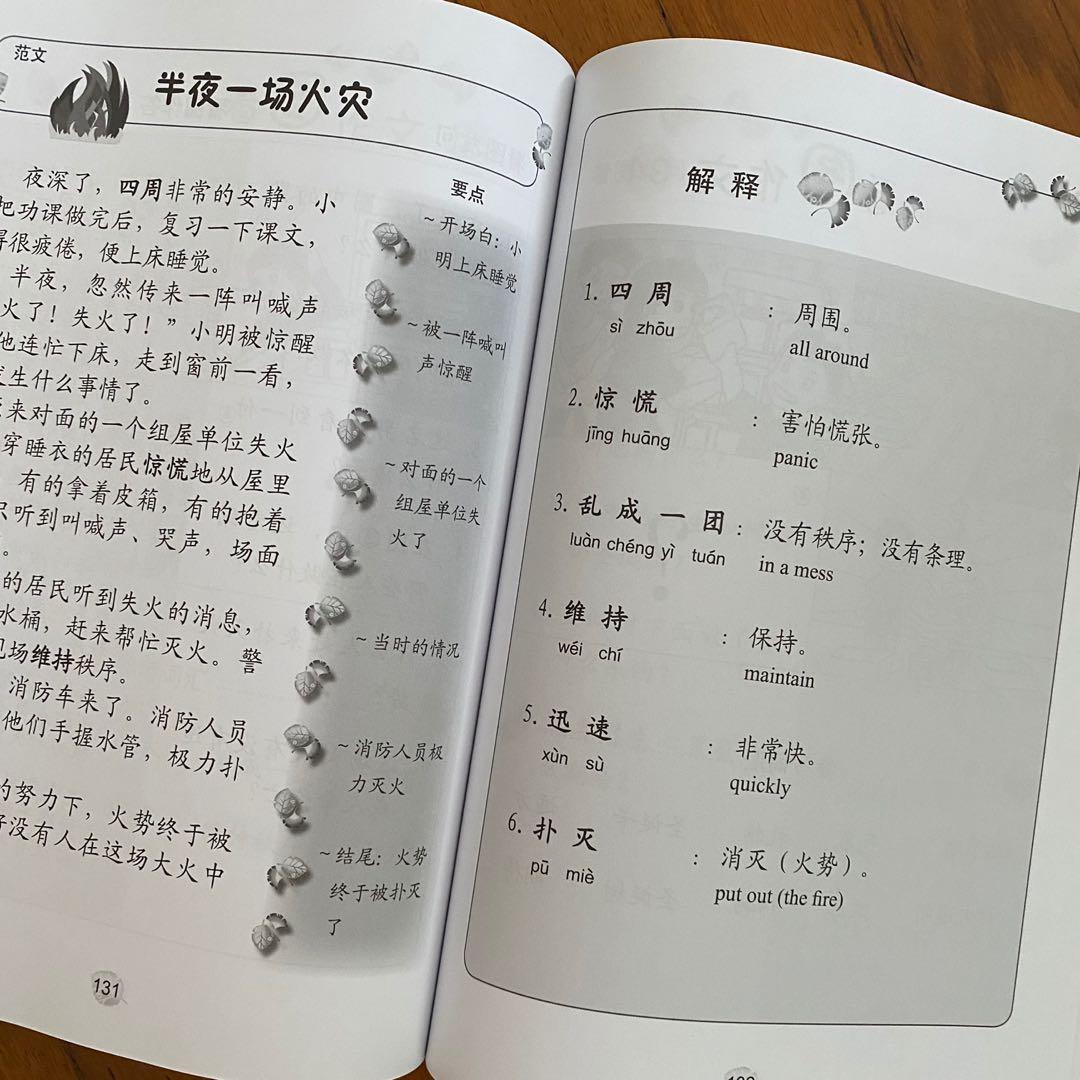 范文
半夜一场火灾
夜深了，四周非常的安静。小
把功课做完后，复习一下课文，
得很疲倦，便上床睡觉。
半夜，忽然传来一阵叫喊声
火了！失火了！”小明被惊醒
他连忙下床，走到窗前一看，
发生什么事情了。
来对面的一个组屋单位失火
穿睡衣的居民惊慌地从屋里
有的拿着皮箱，有的抱着
只听到叫喊声、哭声，场面
。
的居民听到失火的消息，
水桶，赶来帮忙灭火。警
现场维持秩序。
消防车来了。消防人员
他们手握水管，极力扑
的努力下，火势终于被
好没有人在这场大火中
要点
~ 开场白：小
明上床睡觉
~ 被一阵喊叫
声惊醒
~ 对面的一个
组屋单位失
火了
~ 当时的情况
~ 消防人员极
力灭火
~ 结尾：火势
终于被扑灭
了
131
解释
1. 四周 ： 周围。
sì zhōu all around
2. 惊慌 ： 害怕慌张。
jīng huāng panic
3. 乱成一团： 没有秩序；没有条理。
luàn chéng yì tuán in a mess
4. 维持 ： 保持。
wéi chí maintain
5. 迅速 ： 非常快。
xùn sù quickly
6. 扑灭 ： 消灭（火势）。
pū miè put out (the fire)